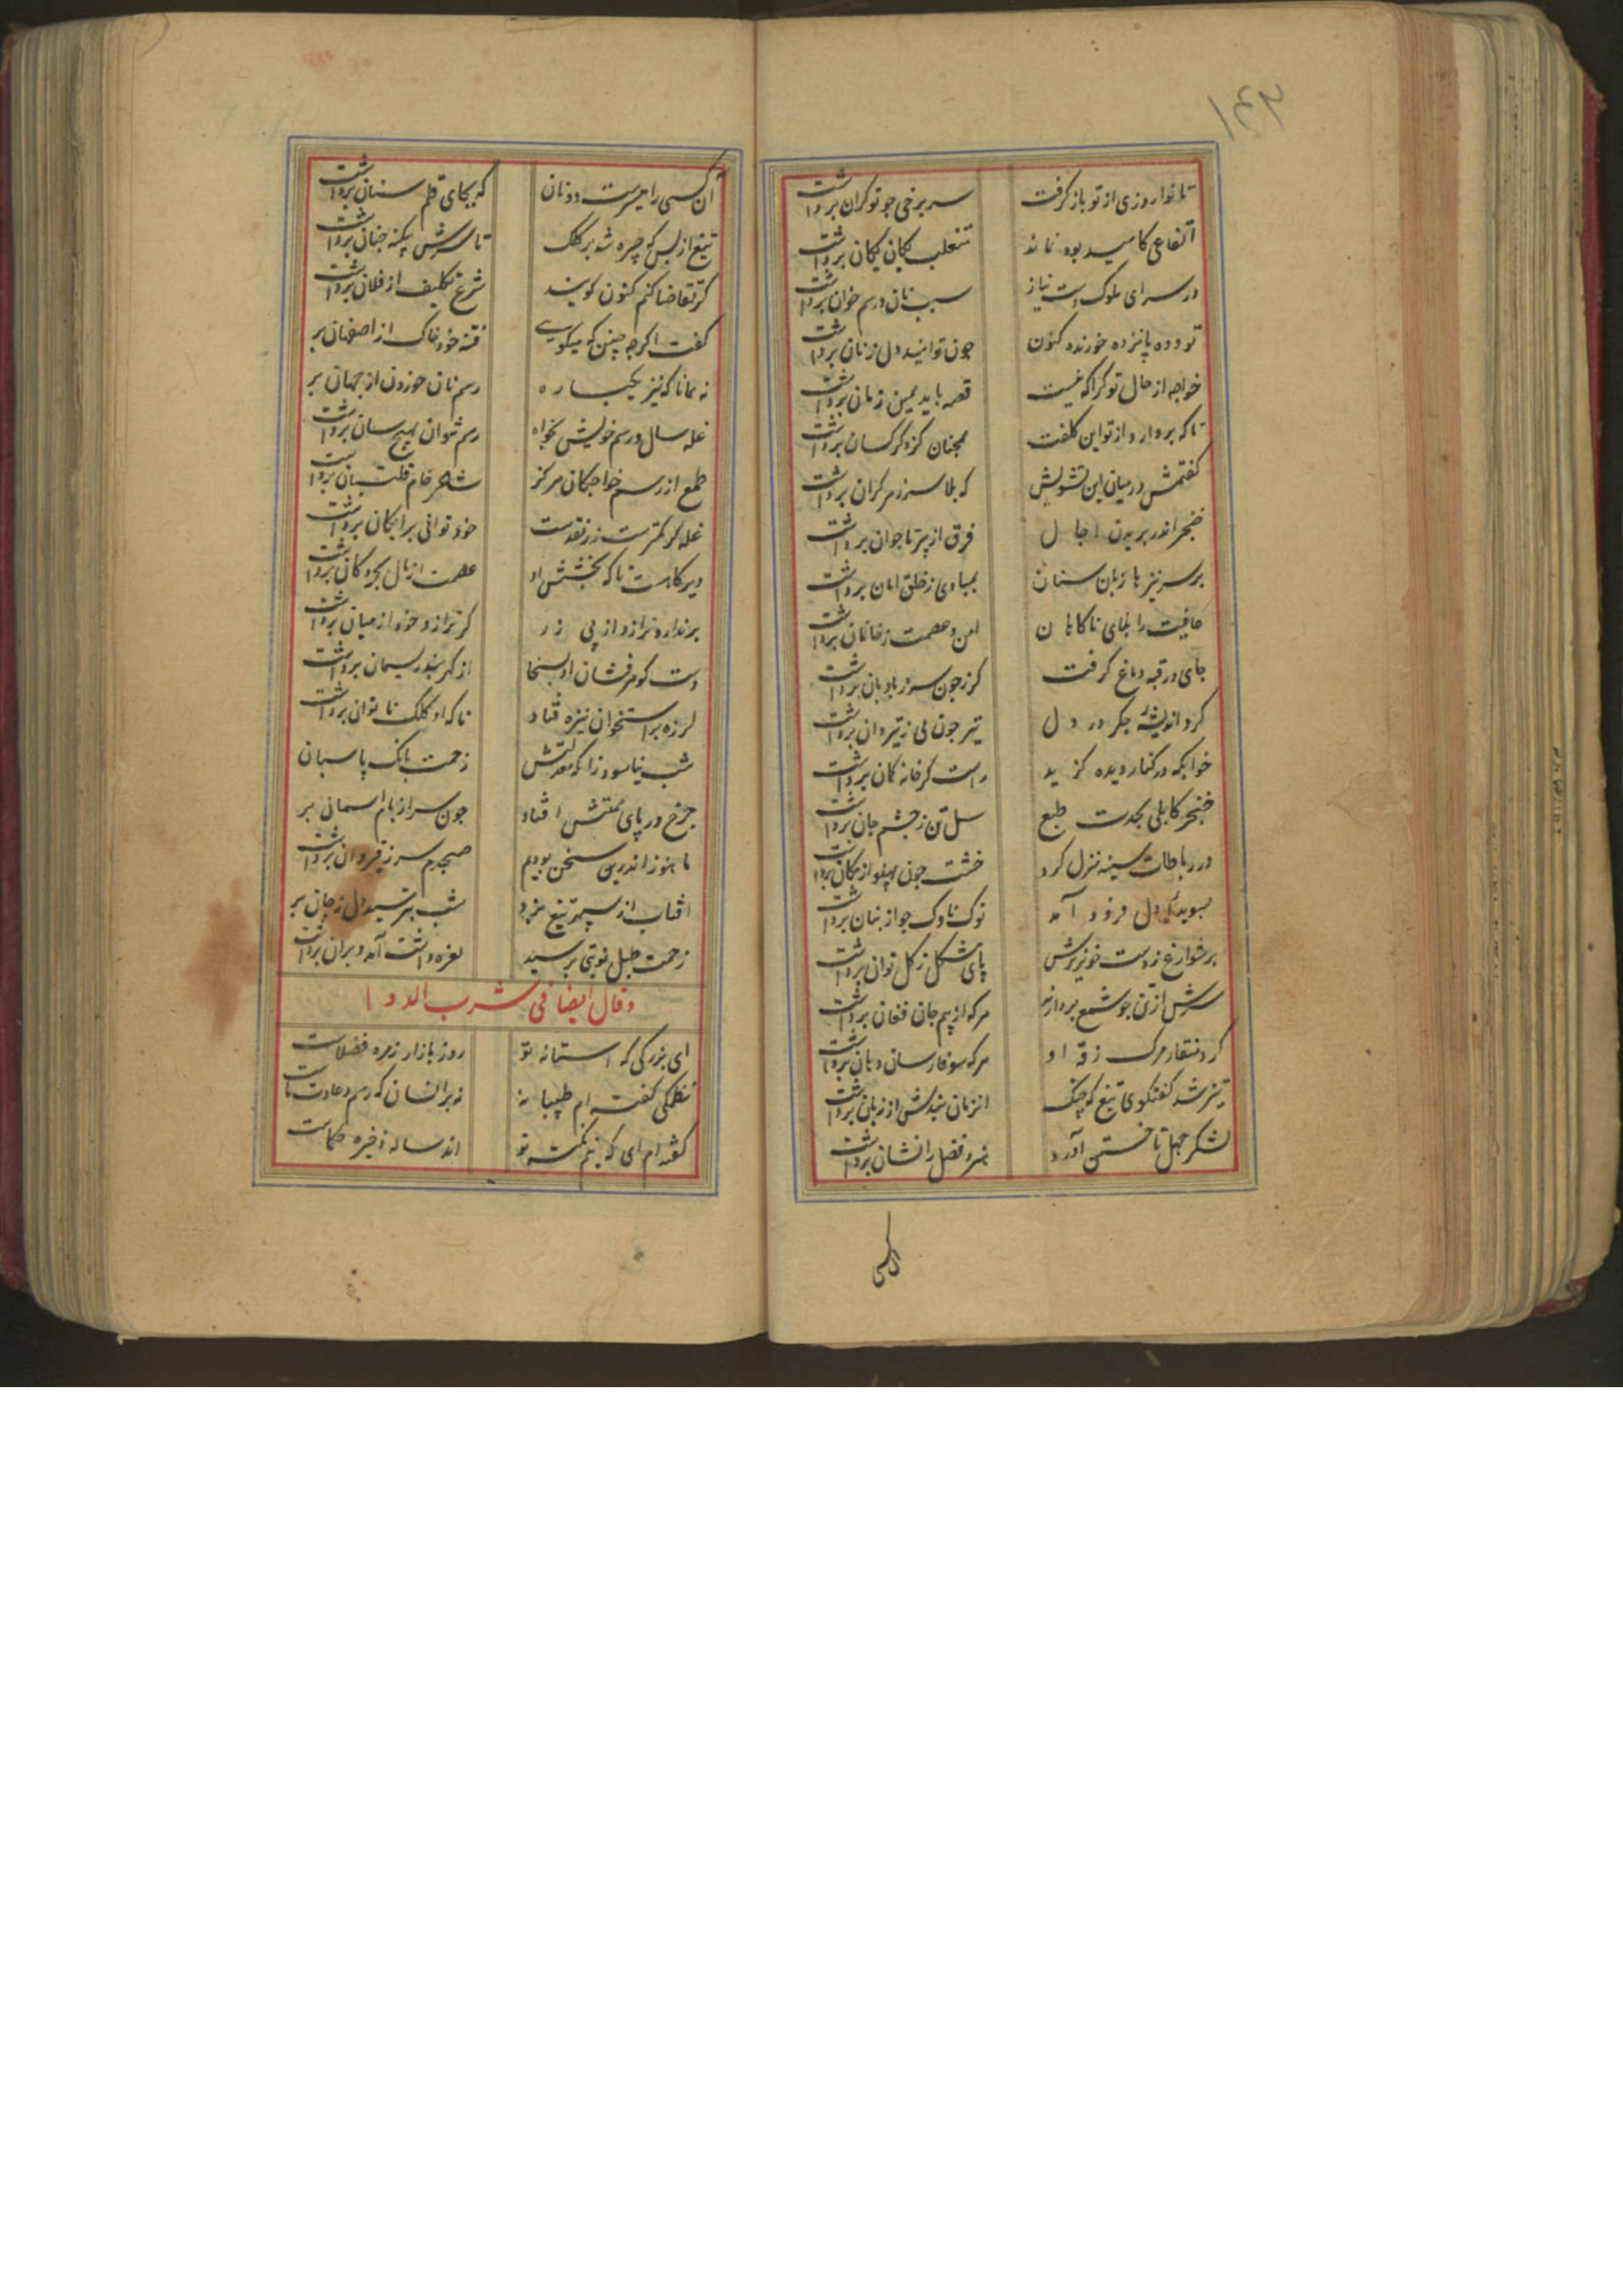 تا نوا روزی از تو باز گرفت سر بزخی جو تو کران برداشت
انتفاعی کا مید بود نماند متغلب یکان یکان برداشت
در سرای ملوک است نیاز سبب نان و رسم خوان برداشت
تو و ده پانزده خورنده کنون جون توانید دل ز نان برداشت
خواجه از حال تو کر آکه نیست قصه باید بمین زمان برداشت
تا که بردارد از تو این کلفت همجنان کز دکر کسان برداشت
کفتمش در میان این تشویش که بلا سر ز هر کران برداشت
خنجر اندر بریدن اجال فرق از پیر تا جوان برداشت
بر سر نیزها زبان سنان بمبادی ز خلق امان برداشت
عافیت را بلای ناکاهان امن و عصمت ز خانمان برداشت
جای در قبه دماغ کرفت کرز جون سر ز بادبان برداشت
کرد اندیشه جکر در دل تیر جون پی ز تیردان برداشت
خوابکه در کنار دیده کزید راست کز خانه کمان برداشت
خنجر کابلی بحدت طبع سل تن ز جشم جان برداشت
در رباطات سینه منزل کرد خشت جون پهلو از مکان برداشت
بسویدای دل فرود آمد نوک ناوک جو از بنان برداشت
بر شوارع ز دست خونریزش پای مشکل ز کل توان برداشت
سرش از تن جو شمع بردارند هر که از بیم جان فغان برداشت
کرد منقار مرک زقه او هر که سوفارسان دهان برداشت
تیز شد کفتکوی تیغ که جنک از زمان بندش از زبان برداشت
لشکر جهل تاختن آورد هنر و فضل را نشان برداشت
آن کسی را میسرست دو نان که بجای قلم سنان برداشت
تیغ از بس که چیره شد بر کلک تا سرش یکنه جنان برداشت
کر تقاضا کنم کنون کویند شرع تکلیف از فلان برداشت
کفت اکرجه چنین که میکویی فتنه خود خاک از اصفهان بر
نه همانا که نیز یکباره رسم نان خوردن از جهان بر
غله سال و رسم خویش بخواه رسم نتوان بهیج سان برداشت
طمع از رسم خواجکان هرکز شاعر خام قلتبان برداشت
غله کر کمترست زر نقدست خود توانی برایکان برداشت
دیر کاهست تا که بخشش او عصمت از مال بحر و کان برداشت
برندارد ترازو از پی زر کر ترازو خود از میان برداشت
دست کوهرفشان او بسخا از کمر بند ریسمان برداشت
لرزه بر استخوان نیزه فتاد تا که او کلک ناتوان برداشت
شب نیاسود زانکه معدلتش زحمت بانک پاسبان
چرخ در پای همتش افتاد جون سر از بام اسمانی بر
ما هنوز اندرین سخن بودیم صبحدم سر ز قیروان برداشت
افتاب از سپهر تیغ بزد شب بترسید دل ز جان بر
زحمت طبل نوبتی برسید نعره داشت آمد و بران برداشت
وقال ایضا فی شرب الدوا
ای بزرکی که استانه تو روز بازار زمره فضلاست
نظمکی کفته ام طبیبانه نه بر انسان که رسم و عادت ماست
کفته ام ای که نیم نکته تو اند ساله ذخیره حکماست